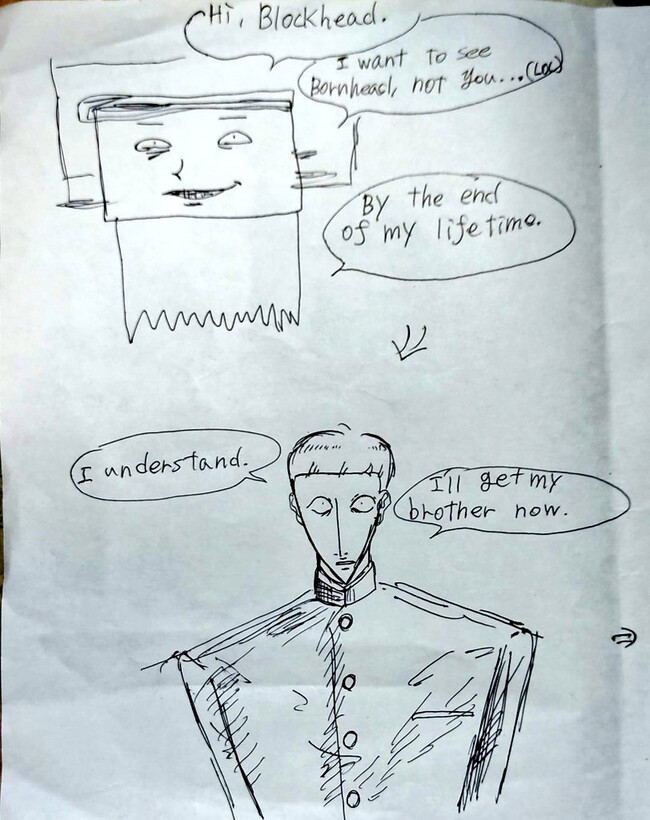 Hi, Blockhead.
I want to see
Bornhead, not you...(LOL)
By the end
of my lifetime.
I understand.
I'll get my
brother now.